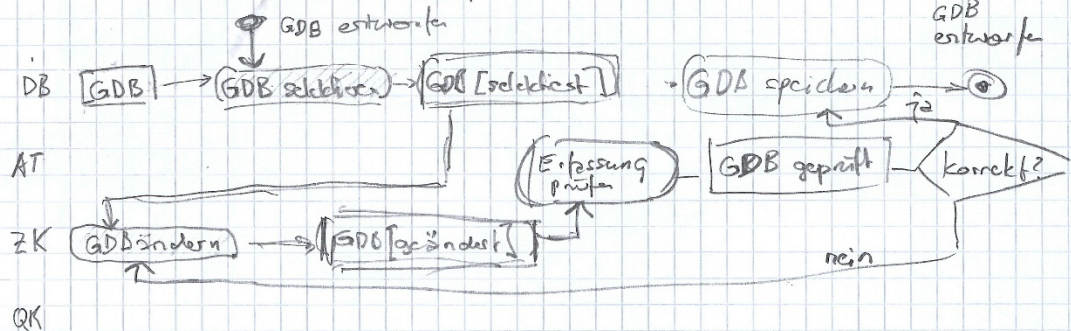 GDB entwerfen
GDB
entworfen
DB GDB GDB selektieren GDB [selektiert] GDB speichern
ja
AT Erfassung
prüfen GDB geprüft korrekt?
ZK GDB ändern GDB [geändert]
nein
QK